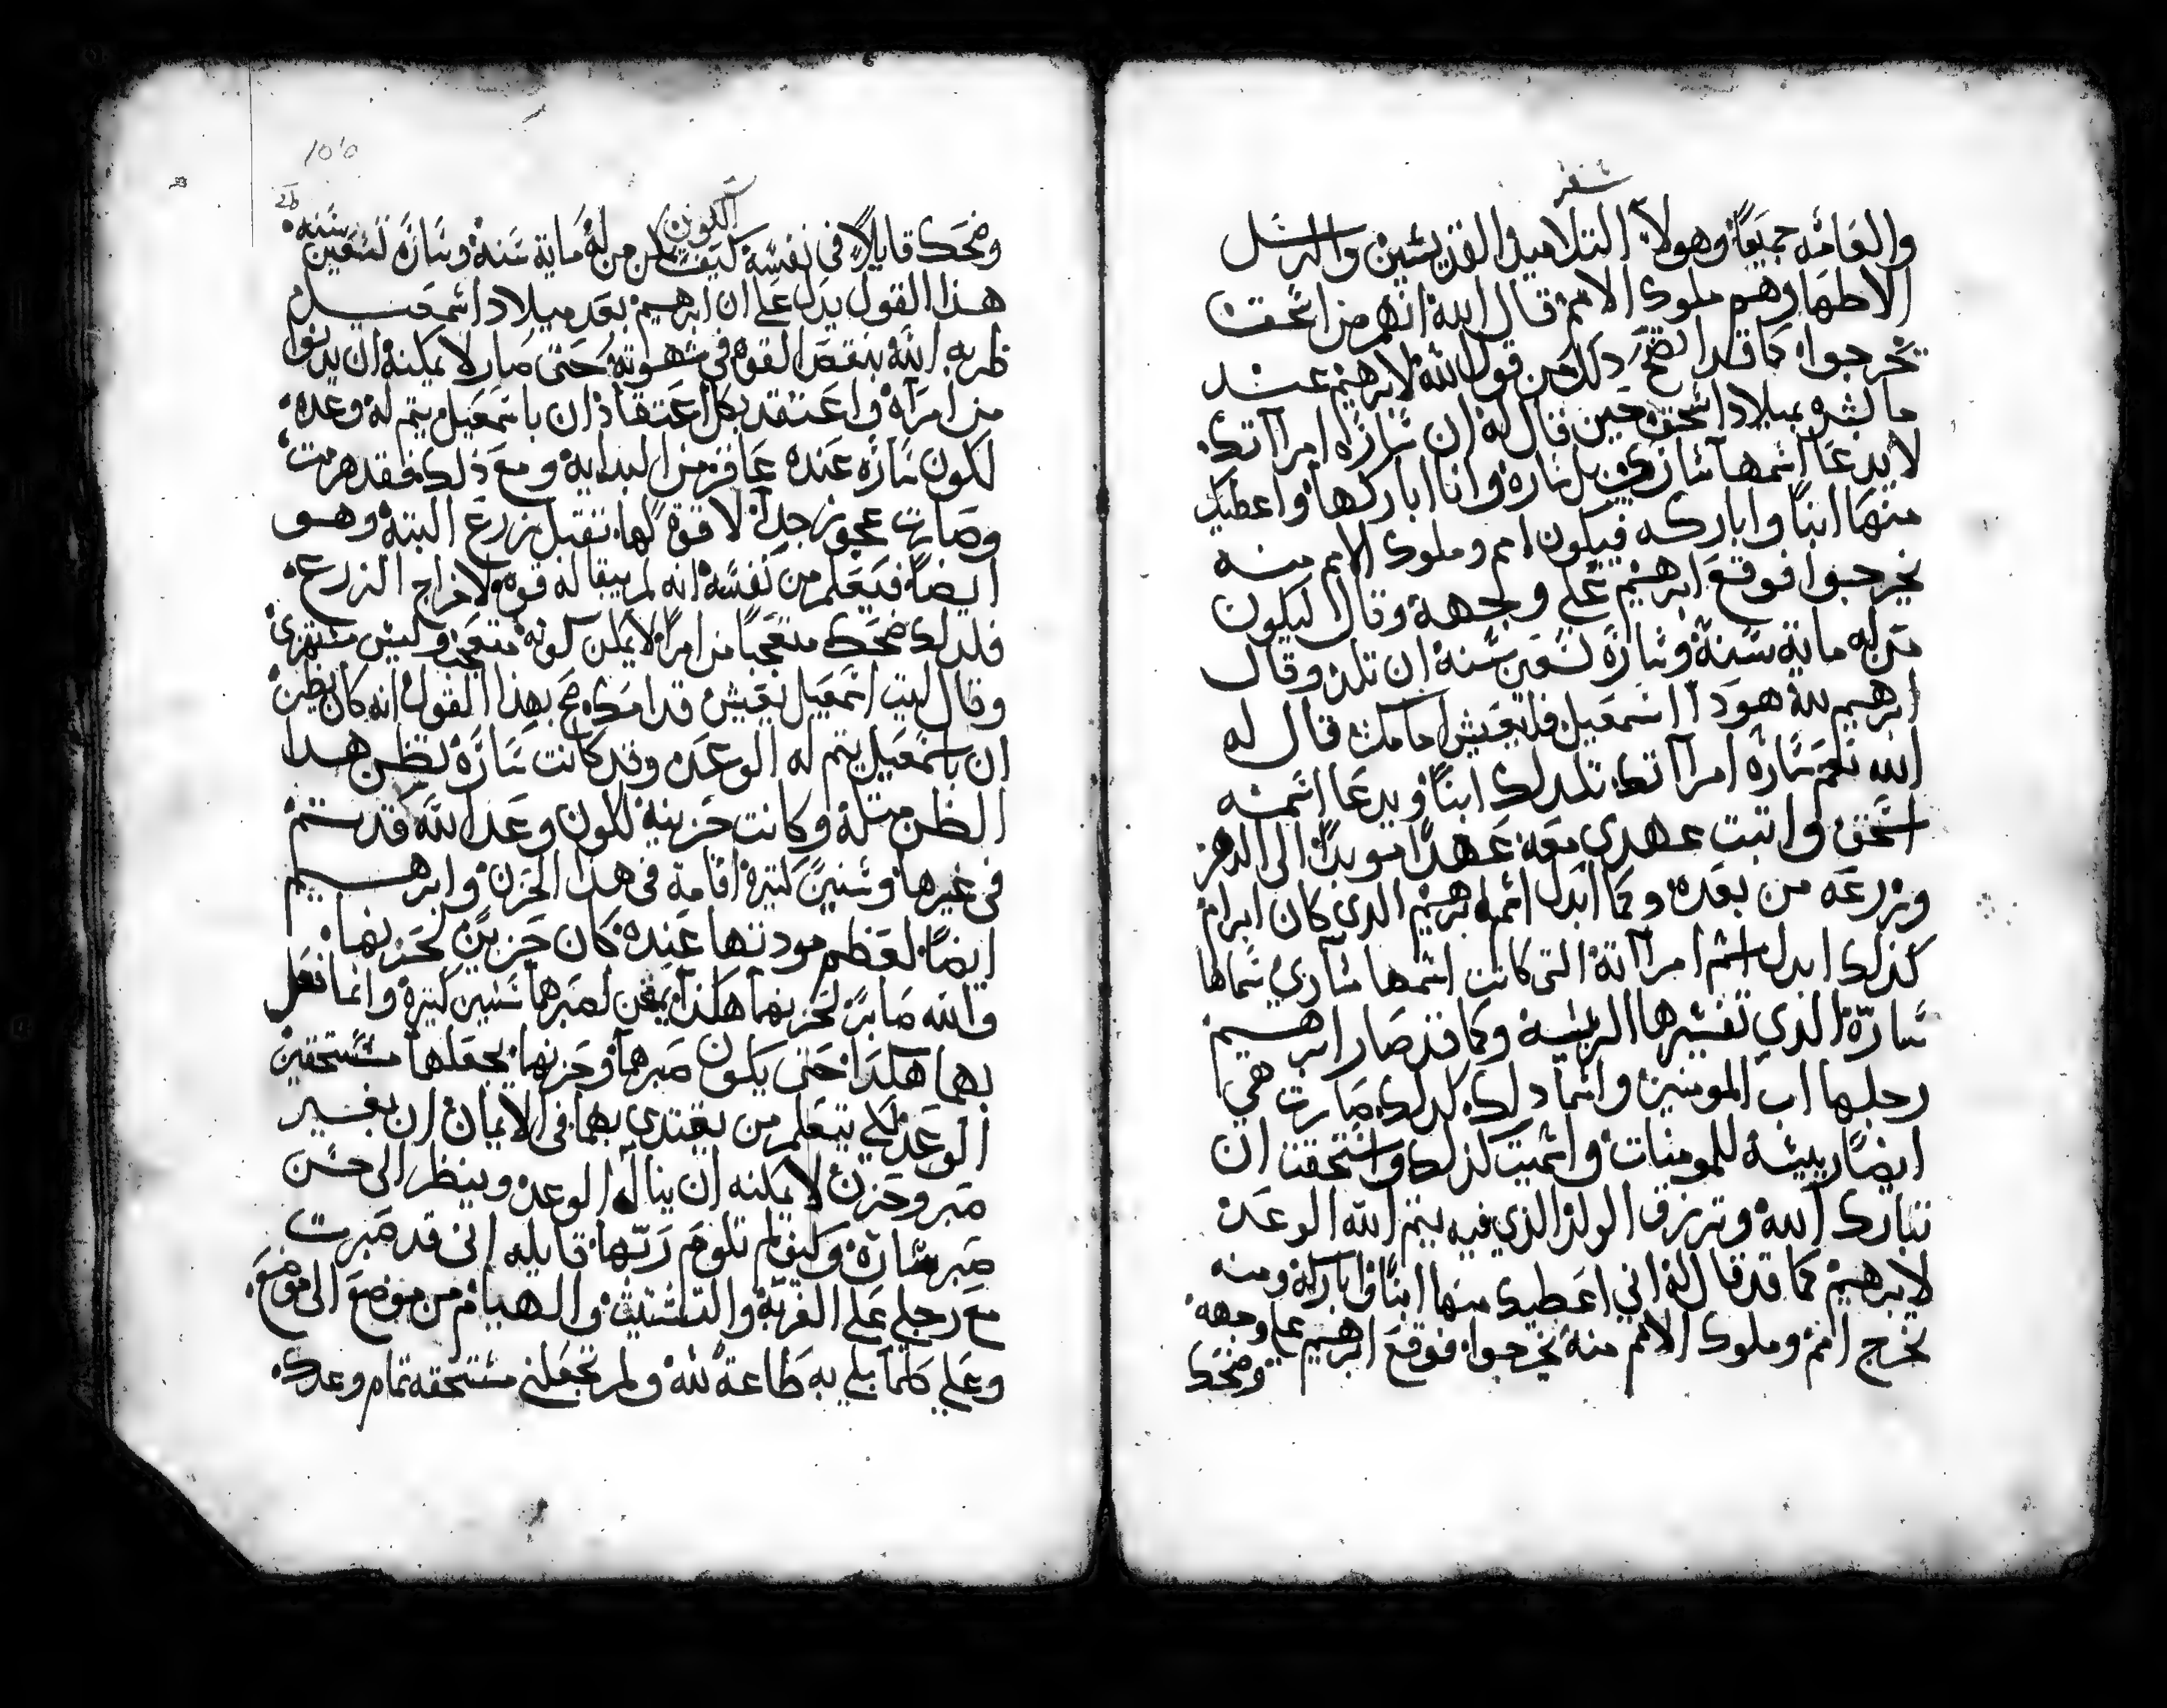 سفر
والعامه جميعًا وهولا التلاميد القديسين والرسل
الاطهار هم ملوك الامم قال الله انهم من اسحق
يخرجوا كما قد اتضح دلك من قول الله لابرهيم عند
ما بشره بميلاد اسحق حين قال له ان ساراه امراتك
لا يدعا اسمها ساراي بل ساره وانا اباركها واعطيك
منها ابنًا واباركه فيكون امم وملوك الامم منه
يخرجوا فوقع ابرهيم على وجهه وقال ليكون
من له ماية سنة وسارة تسعين سنة ان تلد وقال
ابرهيم لله هودا اسمعيل فليعيش امامك قال له
الله نعم سارة امراتك تلد لك ابنًا ويدعا اسمه
اسحق واتبت عهدي معه عهدًا موبدًا الى الدهر
وزرعه من بعده وكما ابدل اسم ابرهيم الدي كان ابرام
كذلك ابدل اسم امراته التى كانت اسمها ساراي سماها
سارّة الذي تفسيرها الرييسة وكما قد صار ابرهيم
رجلها اب المومنين واسما دلك كدلك صارت هي
ايضًا رييسة للمومنات واسميت كذلك واستحقت ان
تبارك الله وترزق الولد الذي فيه يتم الله الوعد
لابرهيم كما قد قال له اني اعطيك منها ابنًا واباركه ومنه
تخرج امم وملوك الامم منه يخرجوا فوقع ابرهيم على وجهه
وضحك
التكوين
وضحك قايلًا في نفسه كيف يمكن من له ماية سنة وسارة تسعين سنه
هذا القول يدل على ان ابرهيم بعد ميلاد اسمعيل
ظربه الله بنقص القوه في شهوته حتى صار لا يمكنه ان يدنوا
من امراه واعتقد بكل اعتقاد ان باسمعيل يتم له وعده
لكون سارة عنده عاقر من البدايه ومع ذلك فقد هرمت
وصارت عجوز جدًا لا قوة لها تقبل زرع البتة وهو
ايضًا فيعلم من نفسه انه لم يبقا له قوه لاخراج الزرع
فلدلك ضحك متعجبًا من امرًا لا يمكن كونه متعجب وليس مستهزئ
وقال ليت اسمعيل يعيش قدامك صح بهذا القول انه كان يظن
ان باسمعيل يتم له الوعد وقد كانت سارة تظن هدا
الظن متله وكانت حزينه لكون وعد الله قد ستم
في غيرها وسنينً كتيره اقامة في هدا الحزن وابرهيم
ايضًا لعظم مودتها عنده كان حزينً لحزنها
والله صابرً لحزنهما هكذا يمتحن لصبرهما سنين كتيرة وانما فعل
بهما هكدا حتى يكون صبرهما وحزنهما يجعلهما مستحقين
الوعد لكي يتعلم من يقتدي بهما في الايمان ان بغير
صبر وحزن لا يمكنه ان ينال الوعد وينظر الى حسن
صبر سارة وكيف لم تلوم ربّها قايله انى قد صبرت
مع رجلي على الغربة والتشتيت والهيام من موضع الى موضع
وعلى كلما بلي به طاعة لله ولم تجعلني مستحقه تمام وعدك